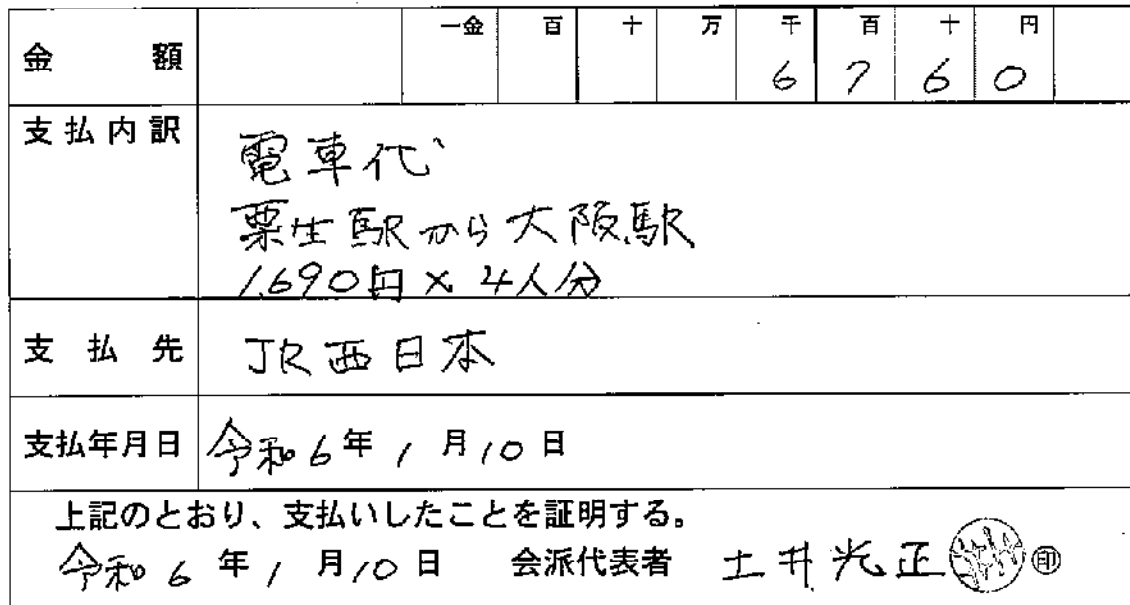 金額 一金 百 十 万 千 百 十 円
6 7 6 0
支払内訳 電車代
粟生駅から大阪駅
1,690円×4人分
支払先 JR西日本
支払年月日 令和6年1月10日
上記のとおり、支払いしたことを証明する。
令和6年1月10日 会派代表者 土井光正 印